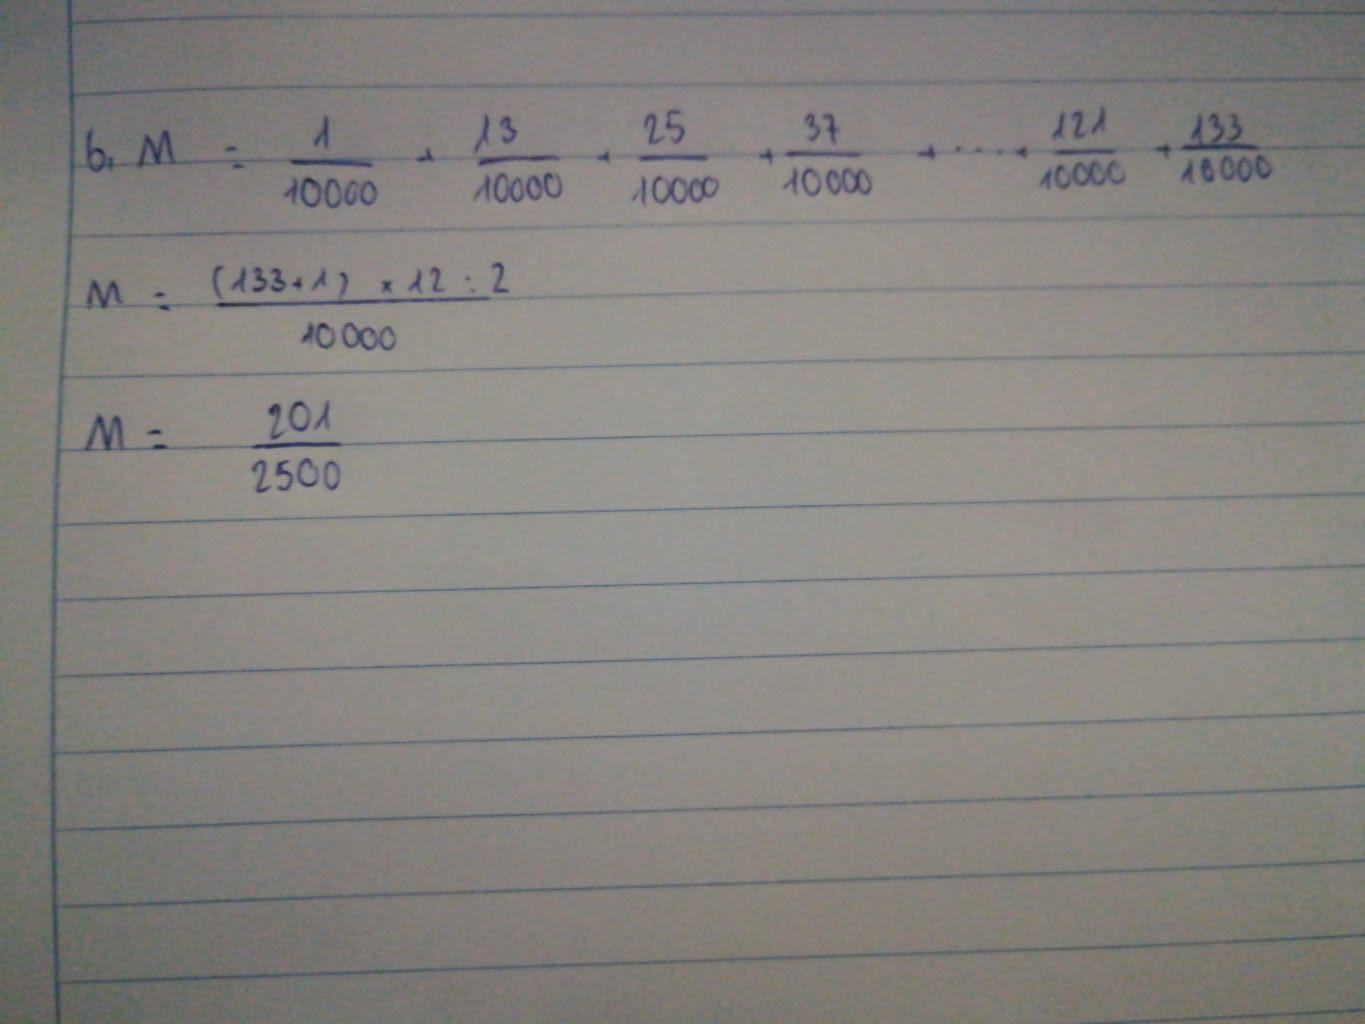 b. M = 1/10000 + 13/10000 + 25/10000 + 37/10000 + ..... + 121/10000 + 133/10000
M = (133+1) x 12 : 2 / 10000
M = 201/2500